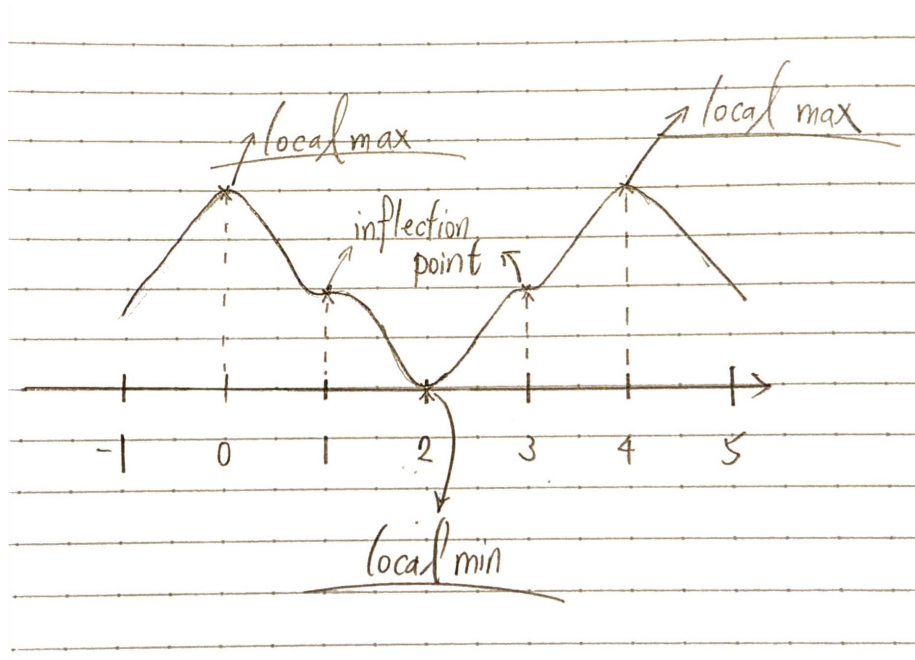 local max
local max
inflection
point
-1 0 1 2 3 4 5
local min